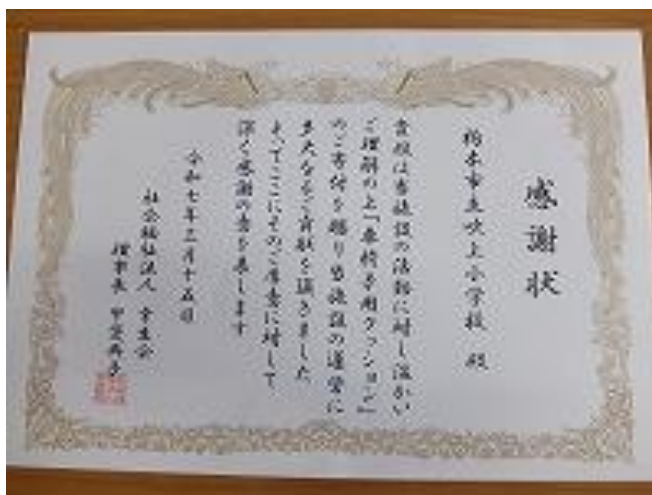 感謝状
栃木市立吹上小学校 殿
貴校は当施設の活動に対し温かい
ご理解の上「車椅子用クッション」
のご寄付を賜り当施設の運営に
多大なるご貢献を頂きました
よってここにそのご厚意に対して
深く感謝の意を表します
令和七年三月十五日
社会福祉法人 幸生会
理事長